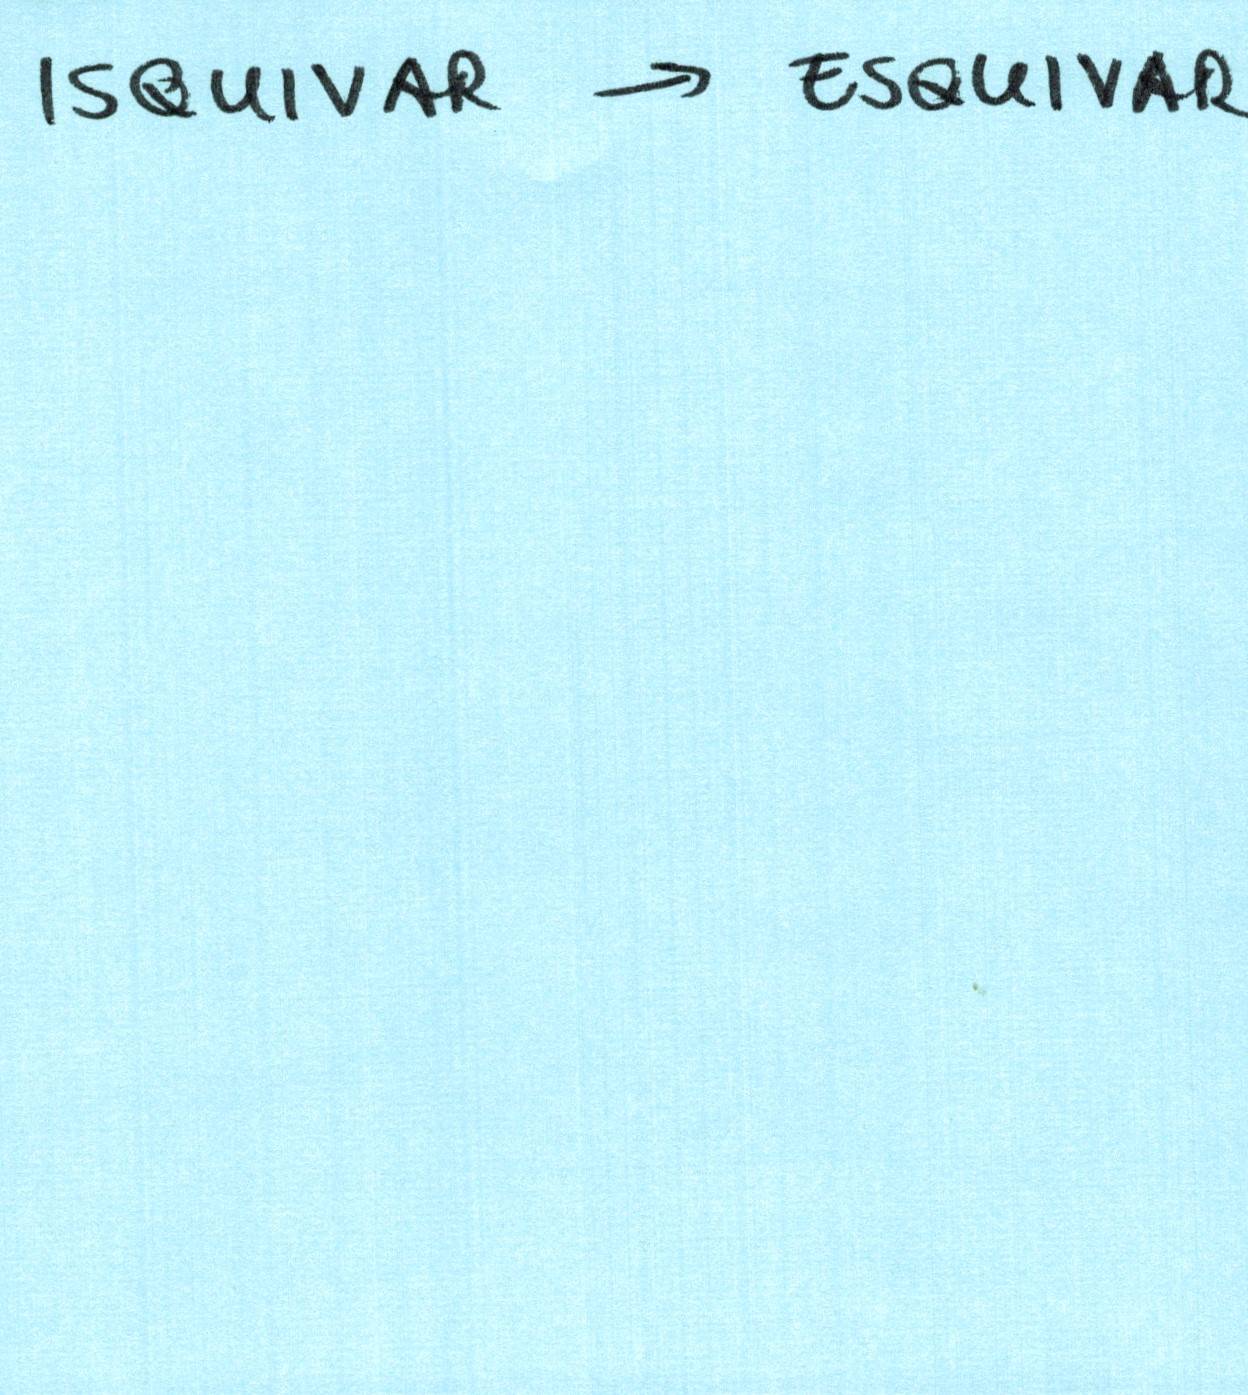 ISQUIVAR → ESQUIVAR